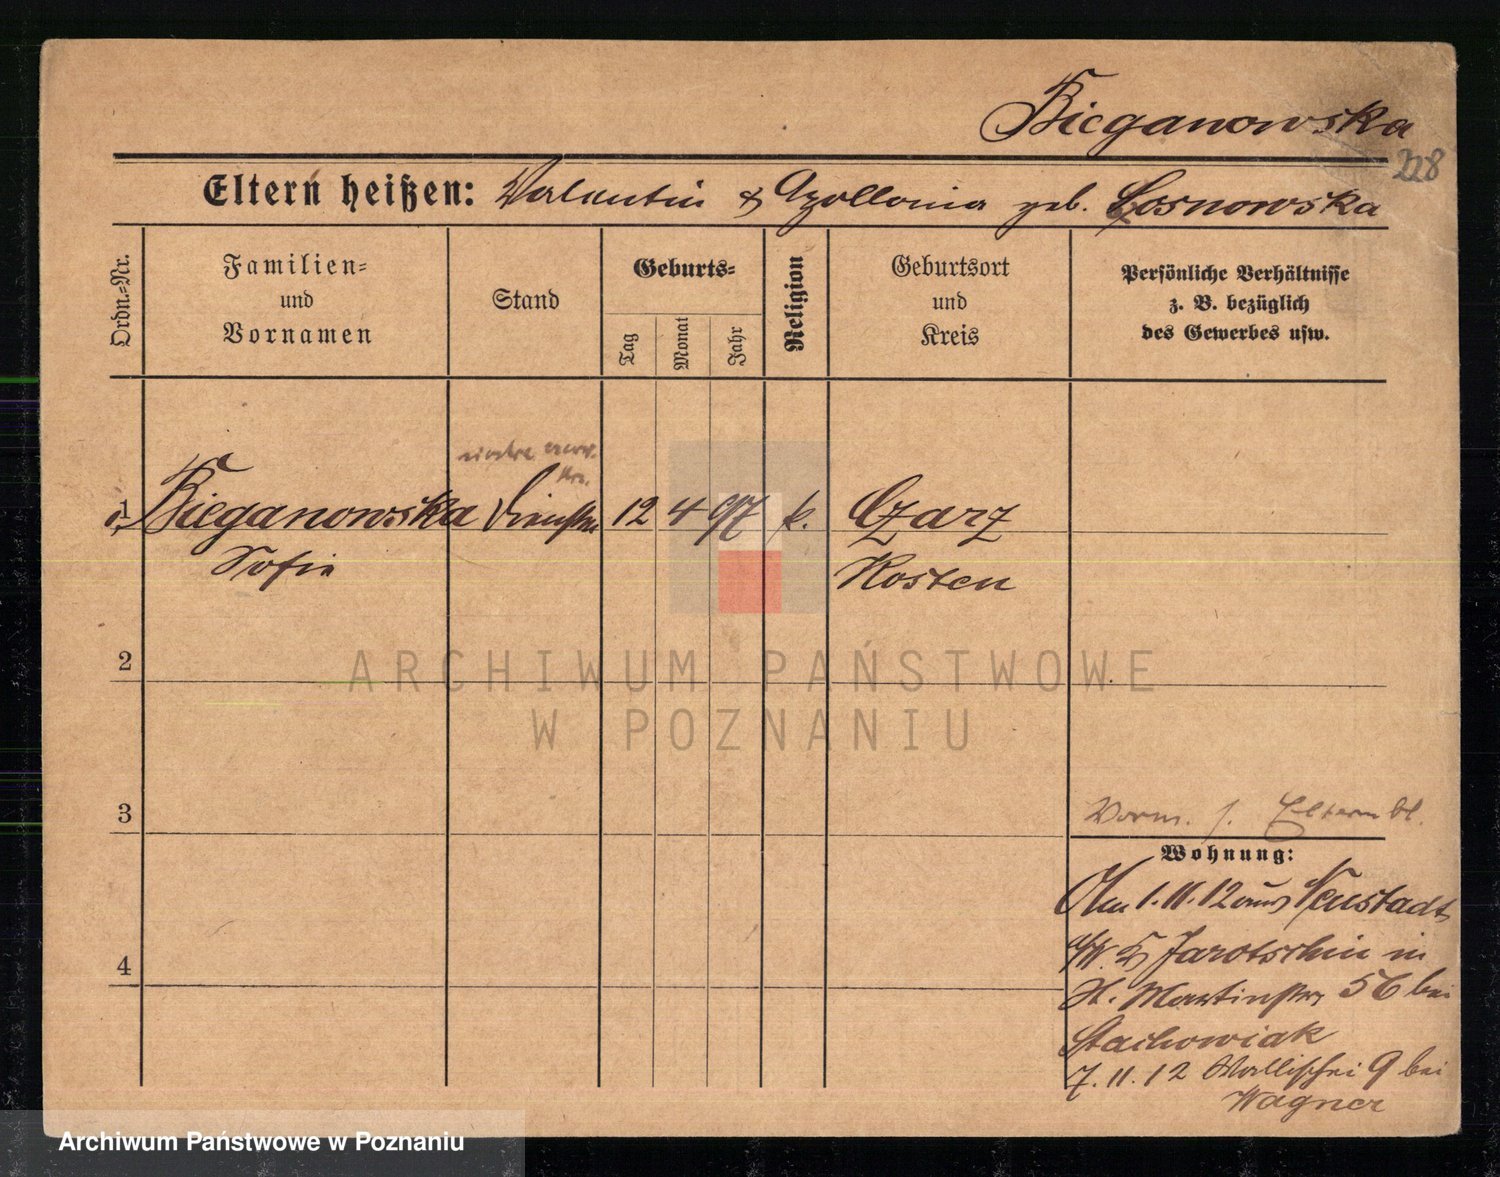 Bieganowska
228
Eltern heißen: Valentin & Apollonia geb. Losnowska
Ordn.-Nr.
Familien-
und
Vornamen
Stand
Geburts-
Tag
Monat
Jahr
Religion
Geburtsort
und
Kreis
Persönliche Verhältnisse
z. B. bezüglich
des Gewerbes usw.
1 Bieganowska 12 4 97 k. Czarz
Sofie Kosten
2
3
4
Vorm. s. Elternbl.
Wohnung:
Am 1.11.12 aus Neustadt
a/W. Jarotschin in
St. Martinstr. 56 bei
Stachowiak
7.11.12 Wallischei 9 bei
Wagner
ARCHIWUM PAŃSTWOWE
W POZNANIU
Archiwum Państwowe w Poznaniu